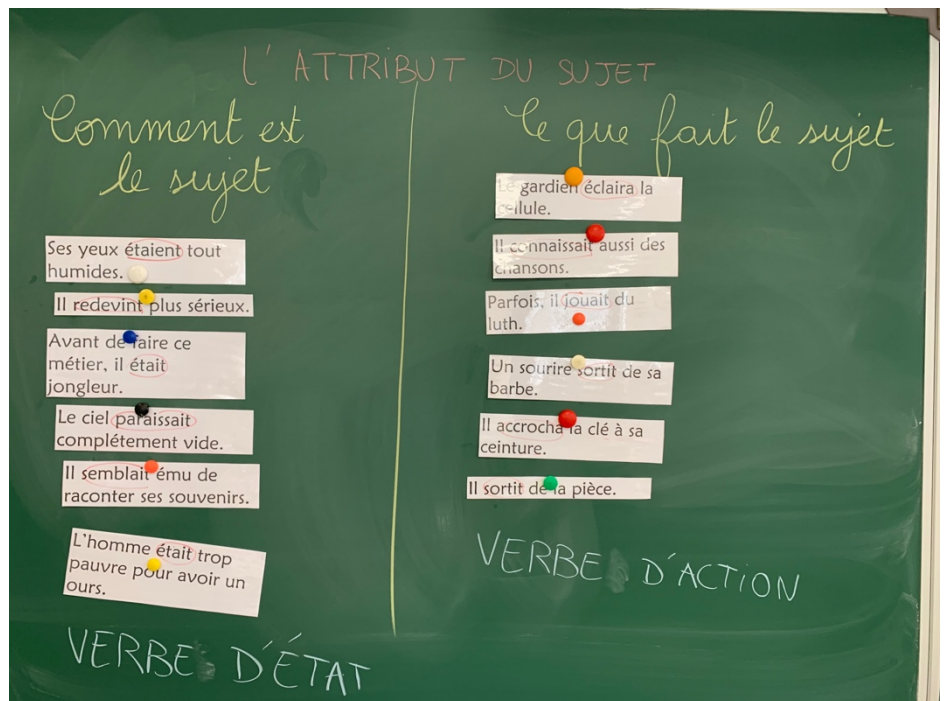 L' ATTRIBUT DU SUJET
Comment est
le sujet
Ses yeux étaient tout
humides.
Il redevint plus sérieux.
Avant de faire ce
métier, il était
jongleur.
Le ciel paraissait
complétement vide.
Il semblait ému de
raconter ses souvenirs.
L'homme était trop
pauvre pour avoir un
ours.
VERBE D'ÉTAT
Ce que fait le sujet
Le gardien éclaira la
cellule.
Il connaissait aussi des
chansons.
Parfois, il jouait du
luth.
Un sourire sortit de sa
barbe.
Il accrocha la clé à sa
ceinture.
Il sortit de la pièce.
VERBE D'ACTION